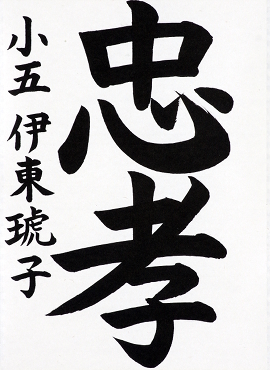 忠孝
小五 伊東琥子